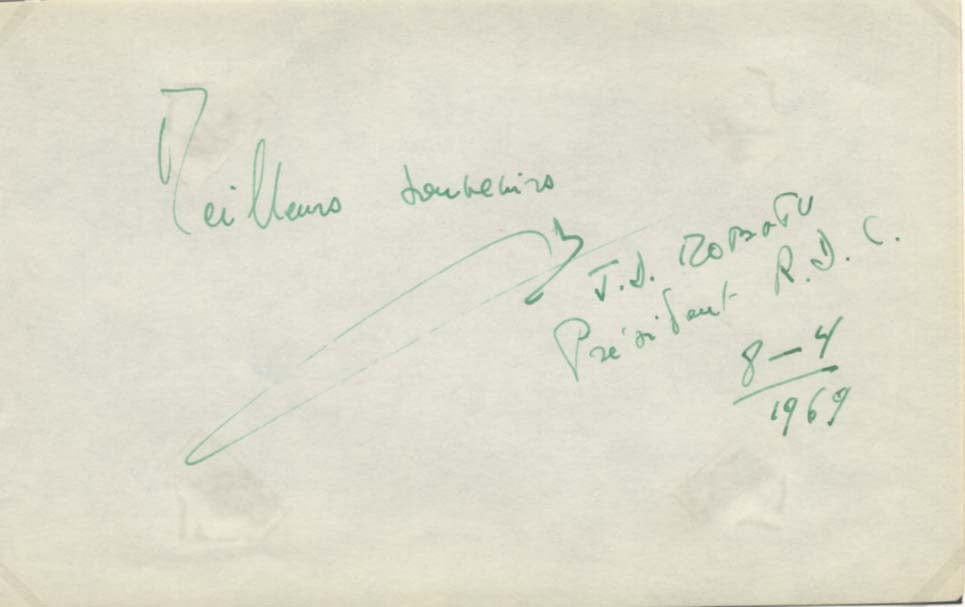 Meilleurs souvenirs
J.D. MOBUTU
Président R.D.C.
8-4
1969